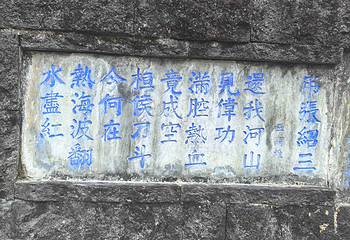 弔張紹三
還我河山
見偉功
滿腔熱血
竟成空
桓侯刁斗
今何在
熱海波翻
水盡紅